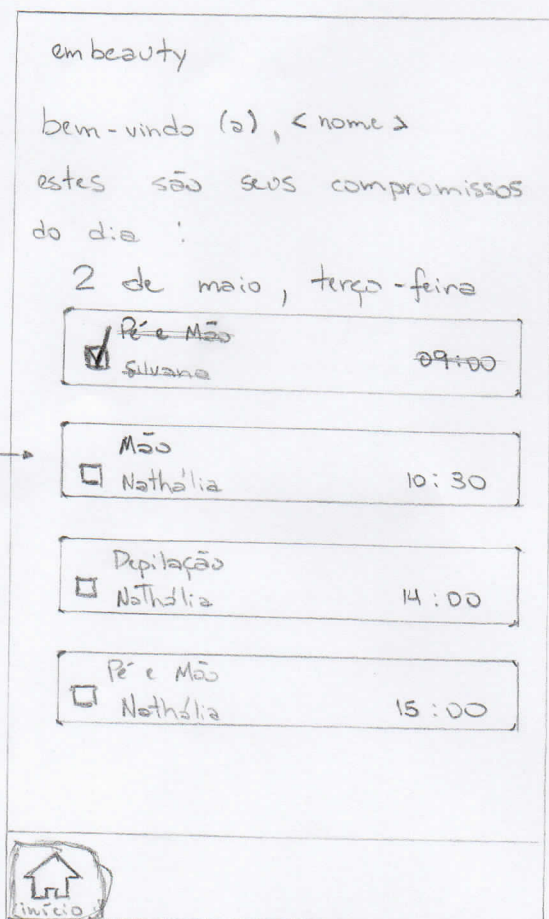 embeauty
bem-vindo (a), < nome >
estes são seus compromissos
do dia :
2 de maio, terça-feira
Pé e Mão
Silvana 09:00
Mão
Nathália 10:30
Depilação
Nathália 14:00
Pé e Mão
Nathália 15:00
início